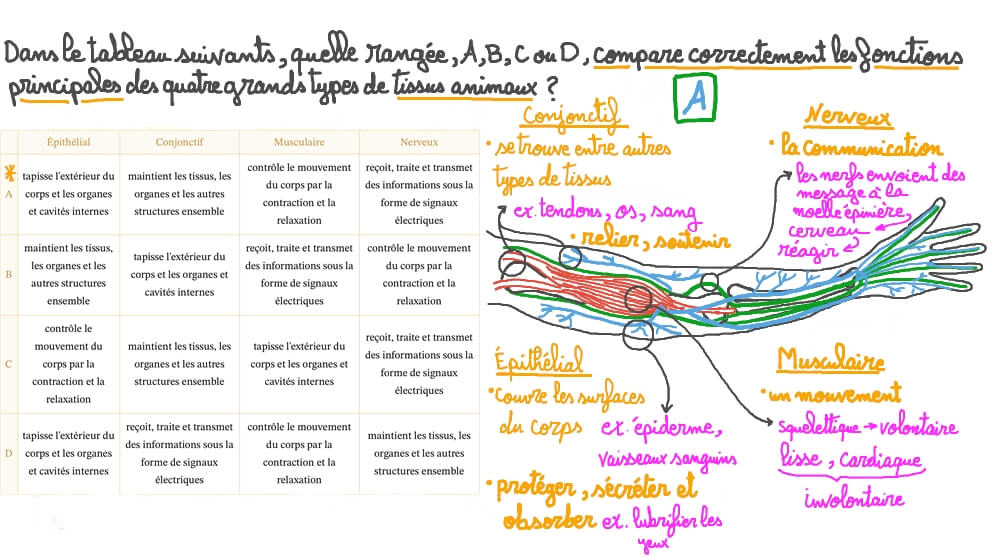 Dans le tableau suivants, quelle rangée, A, B, C ou D, compare correctement les fonctions
principales des quatre grands types de tissus animaux ?
A
Épithélial Conjonctif Musculaire Nerveux
A
tapisse l'extérieur du
corps et les organes
et cavités internes
maintient les tissus, les
organes et les autres
structures ensemble
contrôle le mouvement
du corps par la
contraction et la
relaxation
reçoit, traite et transmet
des informations sous la
forme de signaux
électriques
B
maintient les tissus,
les organes et les
autres structures
ensemble
tapisse l'extérieur du
corps et les organes et
cavités internes
reçoit, traite et transmet
des informations sous la
forme de signaux
électriques
contrôle le mouvement
du corps par la
contraction et la
relaxation
C
contrôle le
mouvement du
corps par la
contraction et la
relaxation
maintient les tissus, les
organes et les autres
structures ensemble
tapisse l'extérieur du
corps et les organes et
cavités internes
reçoit, traite et transmet
des informations sous la
forme de signaux
électriques
D
tapisse l'extérieur du
corps et les organes
et cavités internes
reçoit, traite et transmet
des informations sous la
forme de signaux
électriques
contrôle le mouvement
du corps par la
contraction et la
relaxation
maintient les tissus, les
organes et les autres
structures ensemble
Conjonctif
• se trouve entre autres
types de tissus
ex. tendons, os, sang
• relier, soutenir
Nerveux
• la communication
les nerfs envoient des
message à la
moelle épinière,
cerveau
réagir
Épithélial
• couvre les surfaces
du corps ex. épiderme,
vaisseaux sanguins
• protéger, sécréter et
absorber ex. lubrifier les
yeux
Musculaire
• un mouvement
squelettique → volontaire
lisse, cardiaque
involontaire